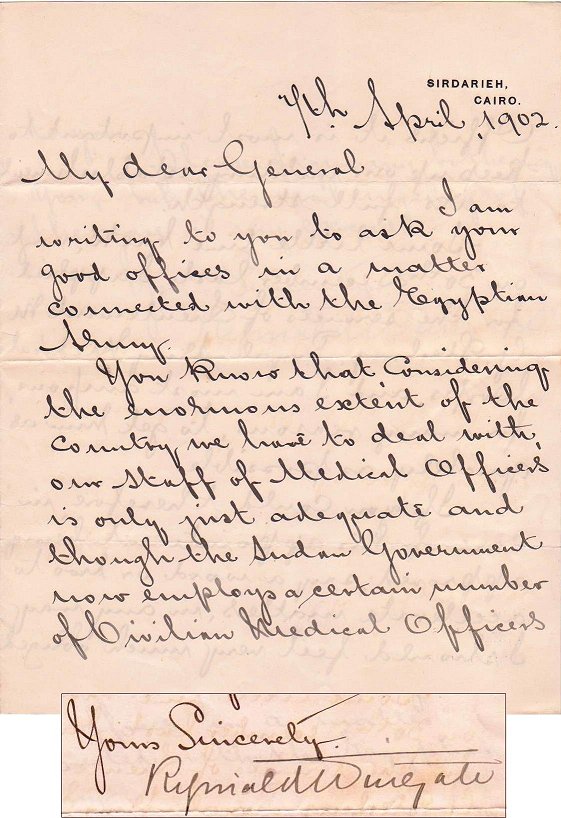 SIRDARIEH,
CAIRO.
7th April, 1902.
My dear General
I am
writing to you to ask your
good offices in a matter
connected with the Egyptian
Army.
You know that considering
the enormous extent of the
country we have to deal with,
our staff of Medical Officers
is only just adequate and
though the Sudan Government
now employs a certain number
of Civilian Medical Officers
Yours Sincerely
Reginald Wingate